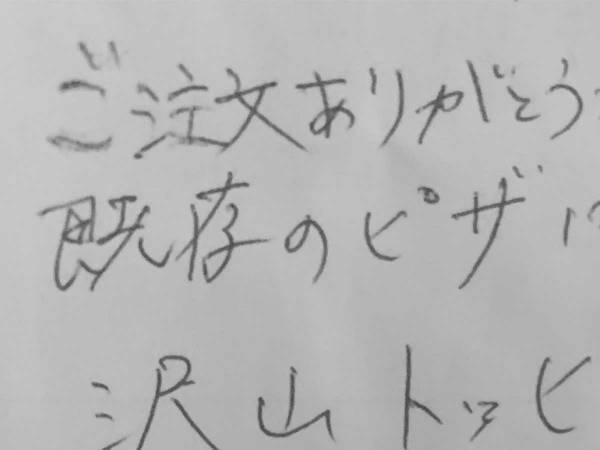 ご注文ありがとう
既存のピザに
沢山トッピ